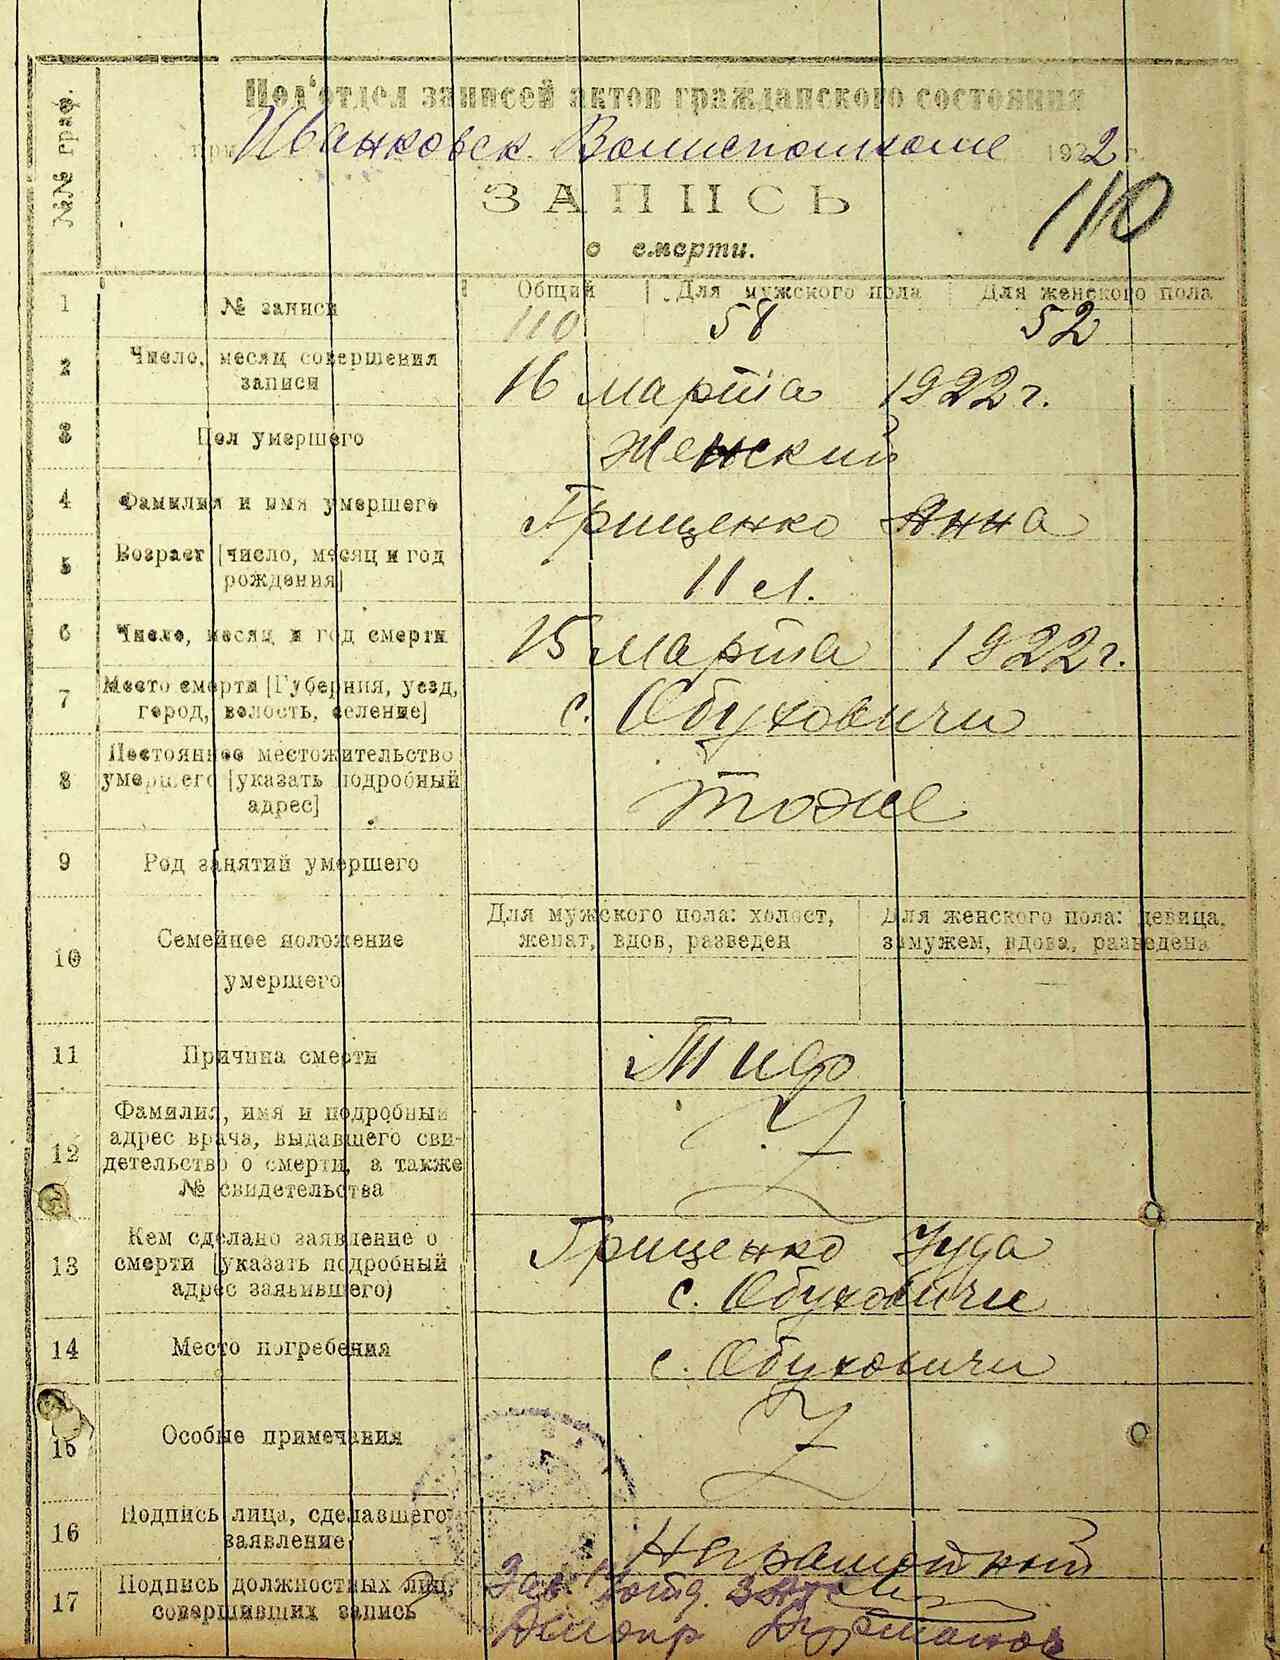 №№ граф.
Под'отдел записей актов гражданского состояния
при Иванковск. Волисполкоме 1922 г.
ЗАПИСЬ
о смерти.
110
1 № записи Общий Для мужского пола Для женского пола
110 58 52
2 Число, месяц совершения
записи
16 марта 1922 г.
3 Пол умершего Женский
4 Фамилия и имя умершего Грищенко Анна
5 Возраст [число, месяц и год
рождения]
11 л.
6 Число, месяц и год смерти 15 марта 1922 г.
7 Место смерти [Губерния, уезд,
город, волость, селение]
с. Обуховичи
8 Постоянное местожительство
умершего [указать подробный
адрес]
тоже
9 Род занятий умершего
10 Семейное положение
умершего
Для мужского пола: холост,
женат, вдов, разведен
Для женского пола: девица,
замужем, вдова, разведена
11 Причина смерти Тиф
12 Фамилия, имя и подробный
адрес врача, выдавшего сви-
детельство о смерти, а также
№ свидетельства
13 Кем сделано заявление о
смерти [указать подробный
адрес заявившего)
Грищенко
с. Обуховичи
14 Место погребения с. Обуховичи
15 Особые примечания
16 Подпись лица, сделавшего
заявление
Неграмотный
17 Подпись должностных лиц,
совершивших запись
Зав.